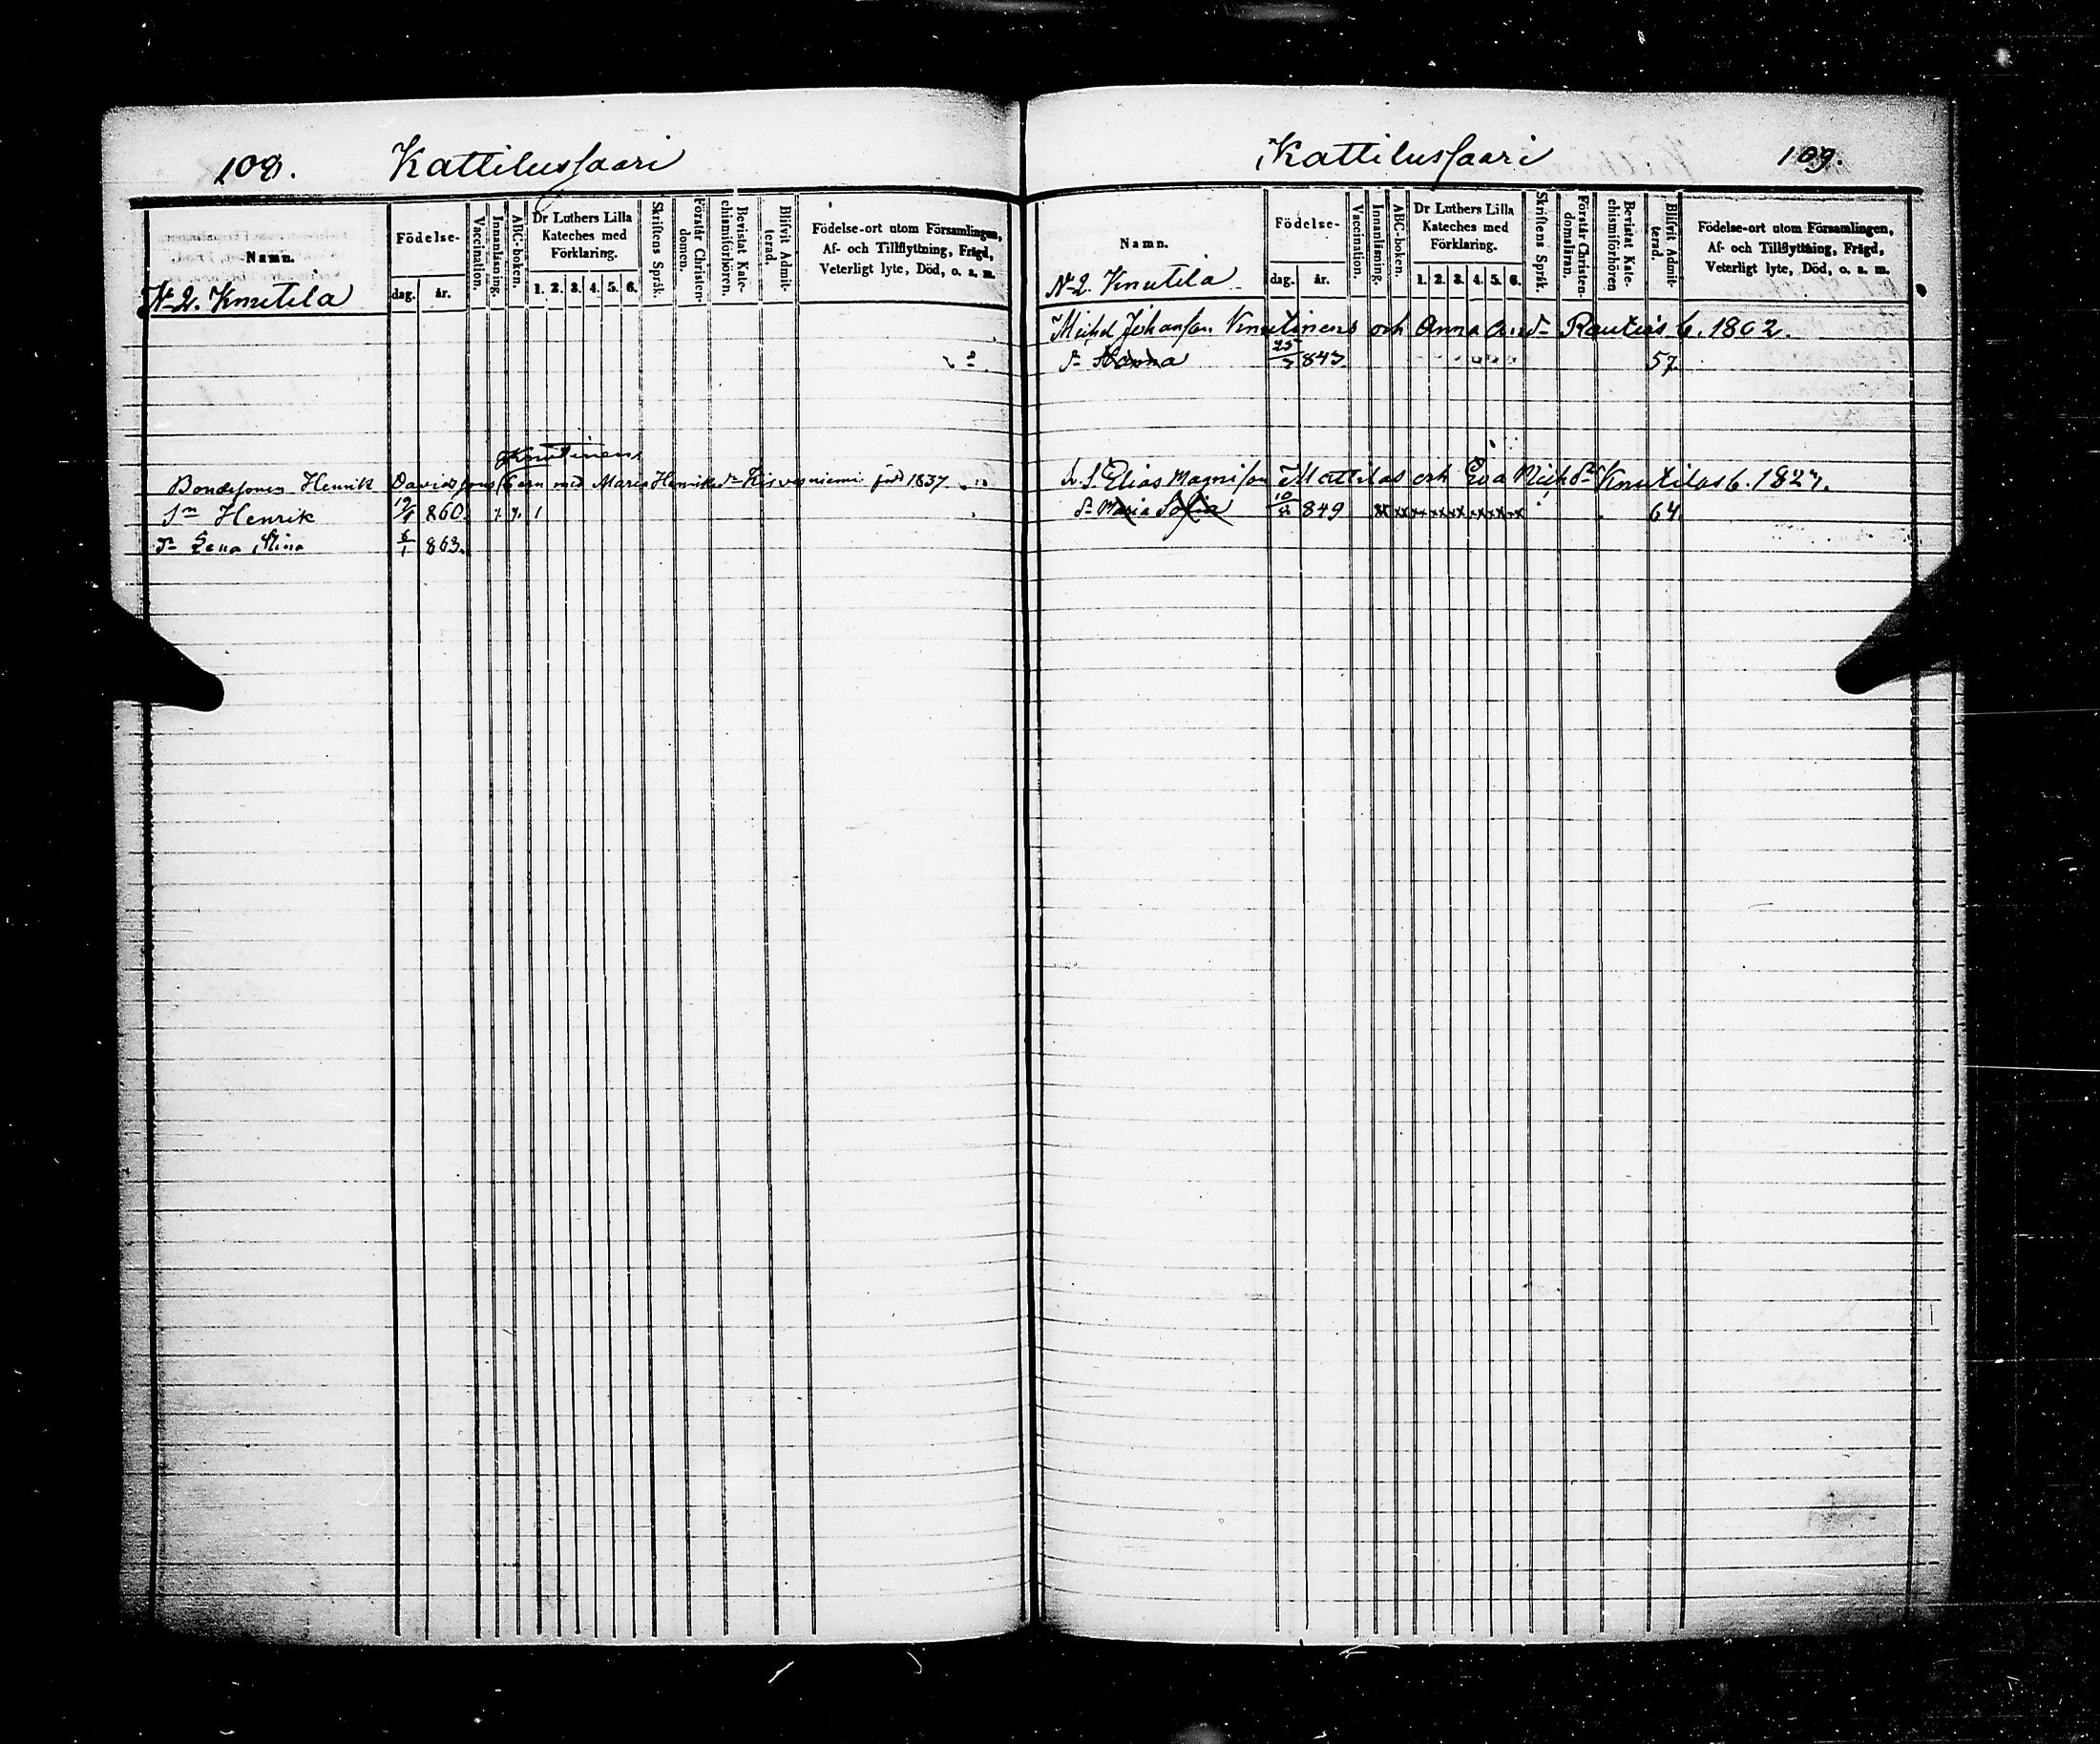 108. Kattilussaari
Namn.
Födelse-
dag. år.
Vaccination.
Innanläsning.
ABC-boken.
Dr Luthers Lilla
Kateches med
Förklaring.
1. 2. 3. 4. 5. 6.
Skriftens Språk.
Förstår Christen-
domen.
Bevistat Kate-
chismiförhören.
Blifvit Admit-
terad.
Födelse-ort utom Församlingen,
Af- och Tillflyttning, Frägd,
Veterligt lyte, Död, o. s. m.
N-2. Knutila
Knutinens
Bondesonen Henrik Davidssons barn med Maria Henriksd- född 1837
Sn Henrik 19/1 860. 1
Dr Lena Stina 6/1 863.
Kattilussaari 109.
Namn.
Födelse-
dag. år.
Vaccination.
Innanläsning.
ABC-boken.
Dr Luthers Lilla
Kateches med
Förklaring.
1. 2. 3. 4. 5. 6.
Skriftens Språk.
Förstår Christen-
domsläran.
Bevistat Kate-
chismiförhören
Blifvit Admit-
terad.
Födelse-ort utom Församlingen,
Af- och Tillflyttning, Frägd,
Veterligt lyte, Död, o. s. m.
N-2. Knutila
Michel Johansson Knutinens och Anna And- Rautios b. 1802.
Dr Hanna 847 57
Elias Magnisson Mattilas och Eva Michd- Knutilas b. 1827.
Dr Maria Sofia 849 xx xx xx xx xx xx xx xx 64